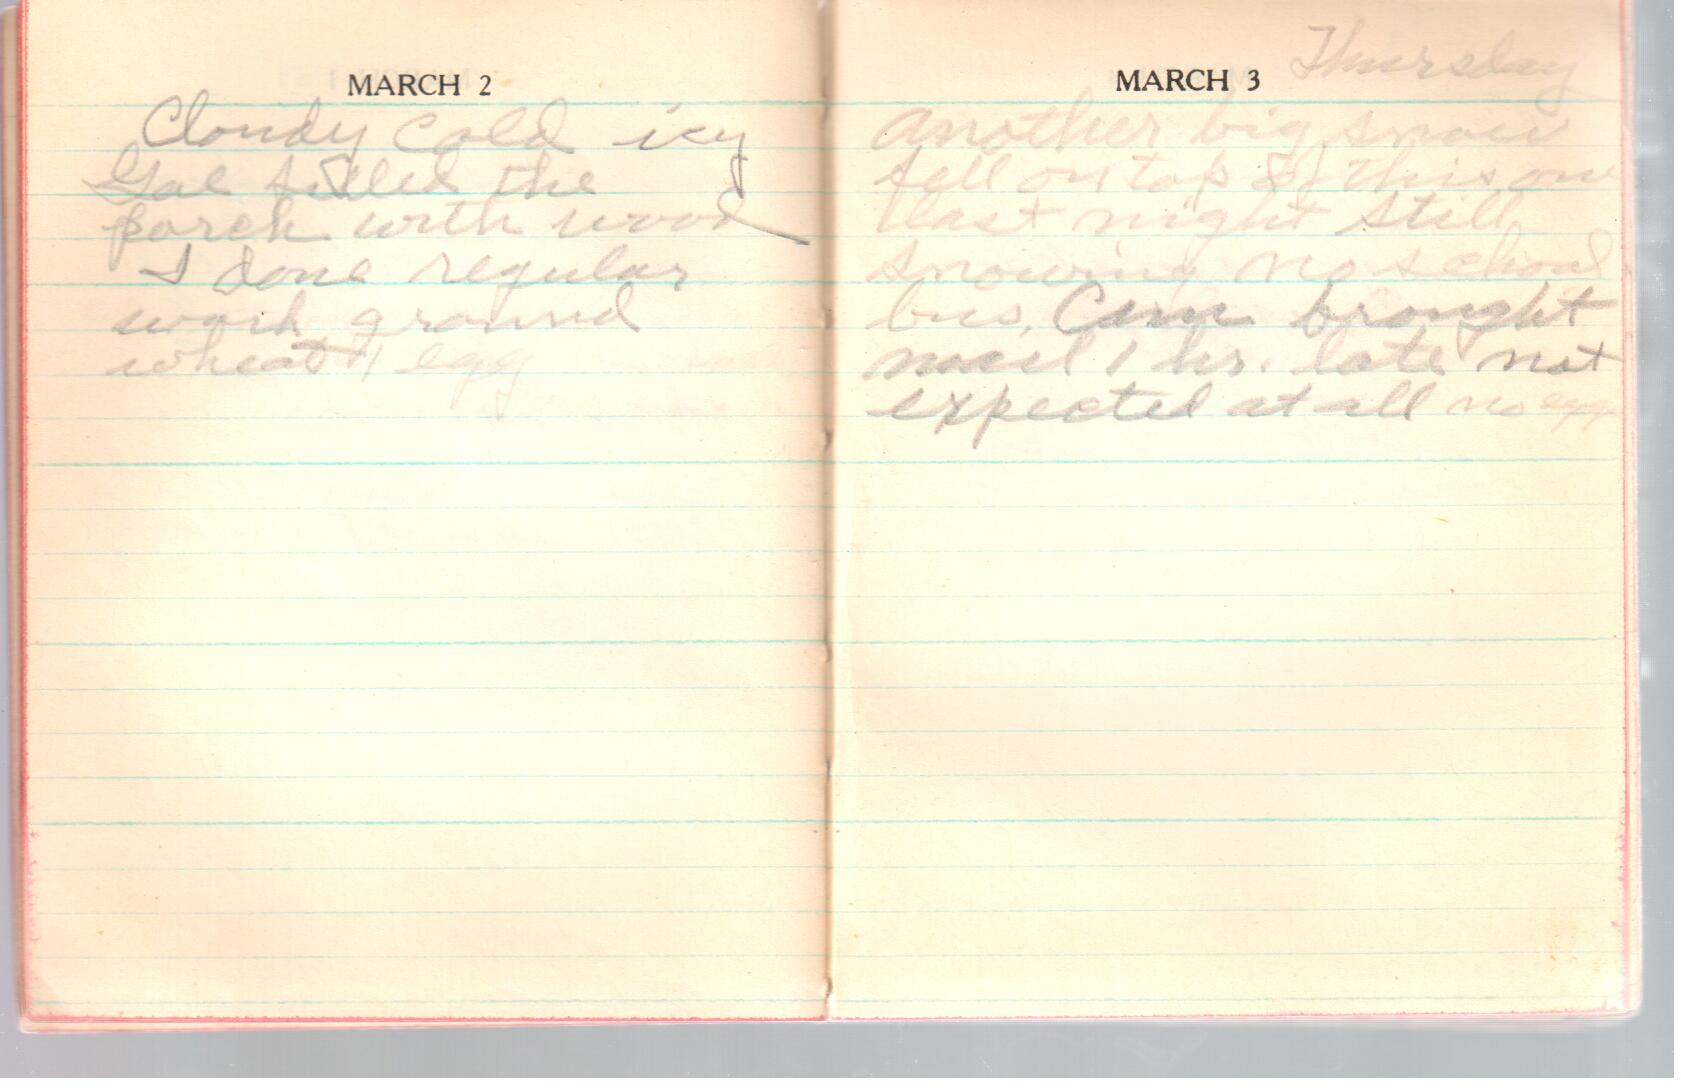 MARCH 2
Cloudy cold icy
filled the
porch with wood
I done regular
work ground
wheat 1 egg
MARCH 3
Thursday
Another big snow
fell on top of this one
last night still
snowing no school
bus. brought
mail 1 hr. late not
expected at all no eggs